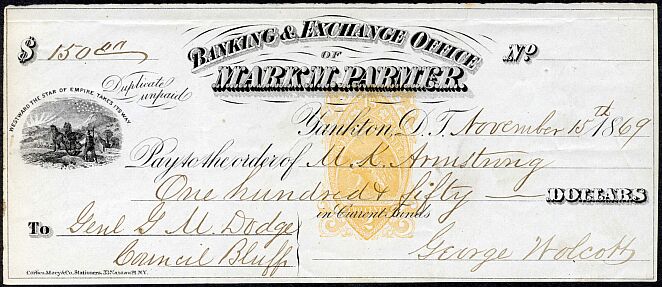 BANKING & EXCHANGE OFFICE
OF
MARK M. PARMER.
$ 150 00
No
Duplicate unpaid
WESTWARD THE STAR OF EMPIRE TAKES ITS WAY
Yankton, D. T. November 15th 1869
Pay to the order of M. K. Armstrong
One hundred & fifty DOLLARS
in Current Funds
To Genl G M Dodge
Council Bluffs
George Wolcott
Corlies, Macy & Co., Stationers, 33 Nassau St. N.Y.